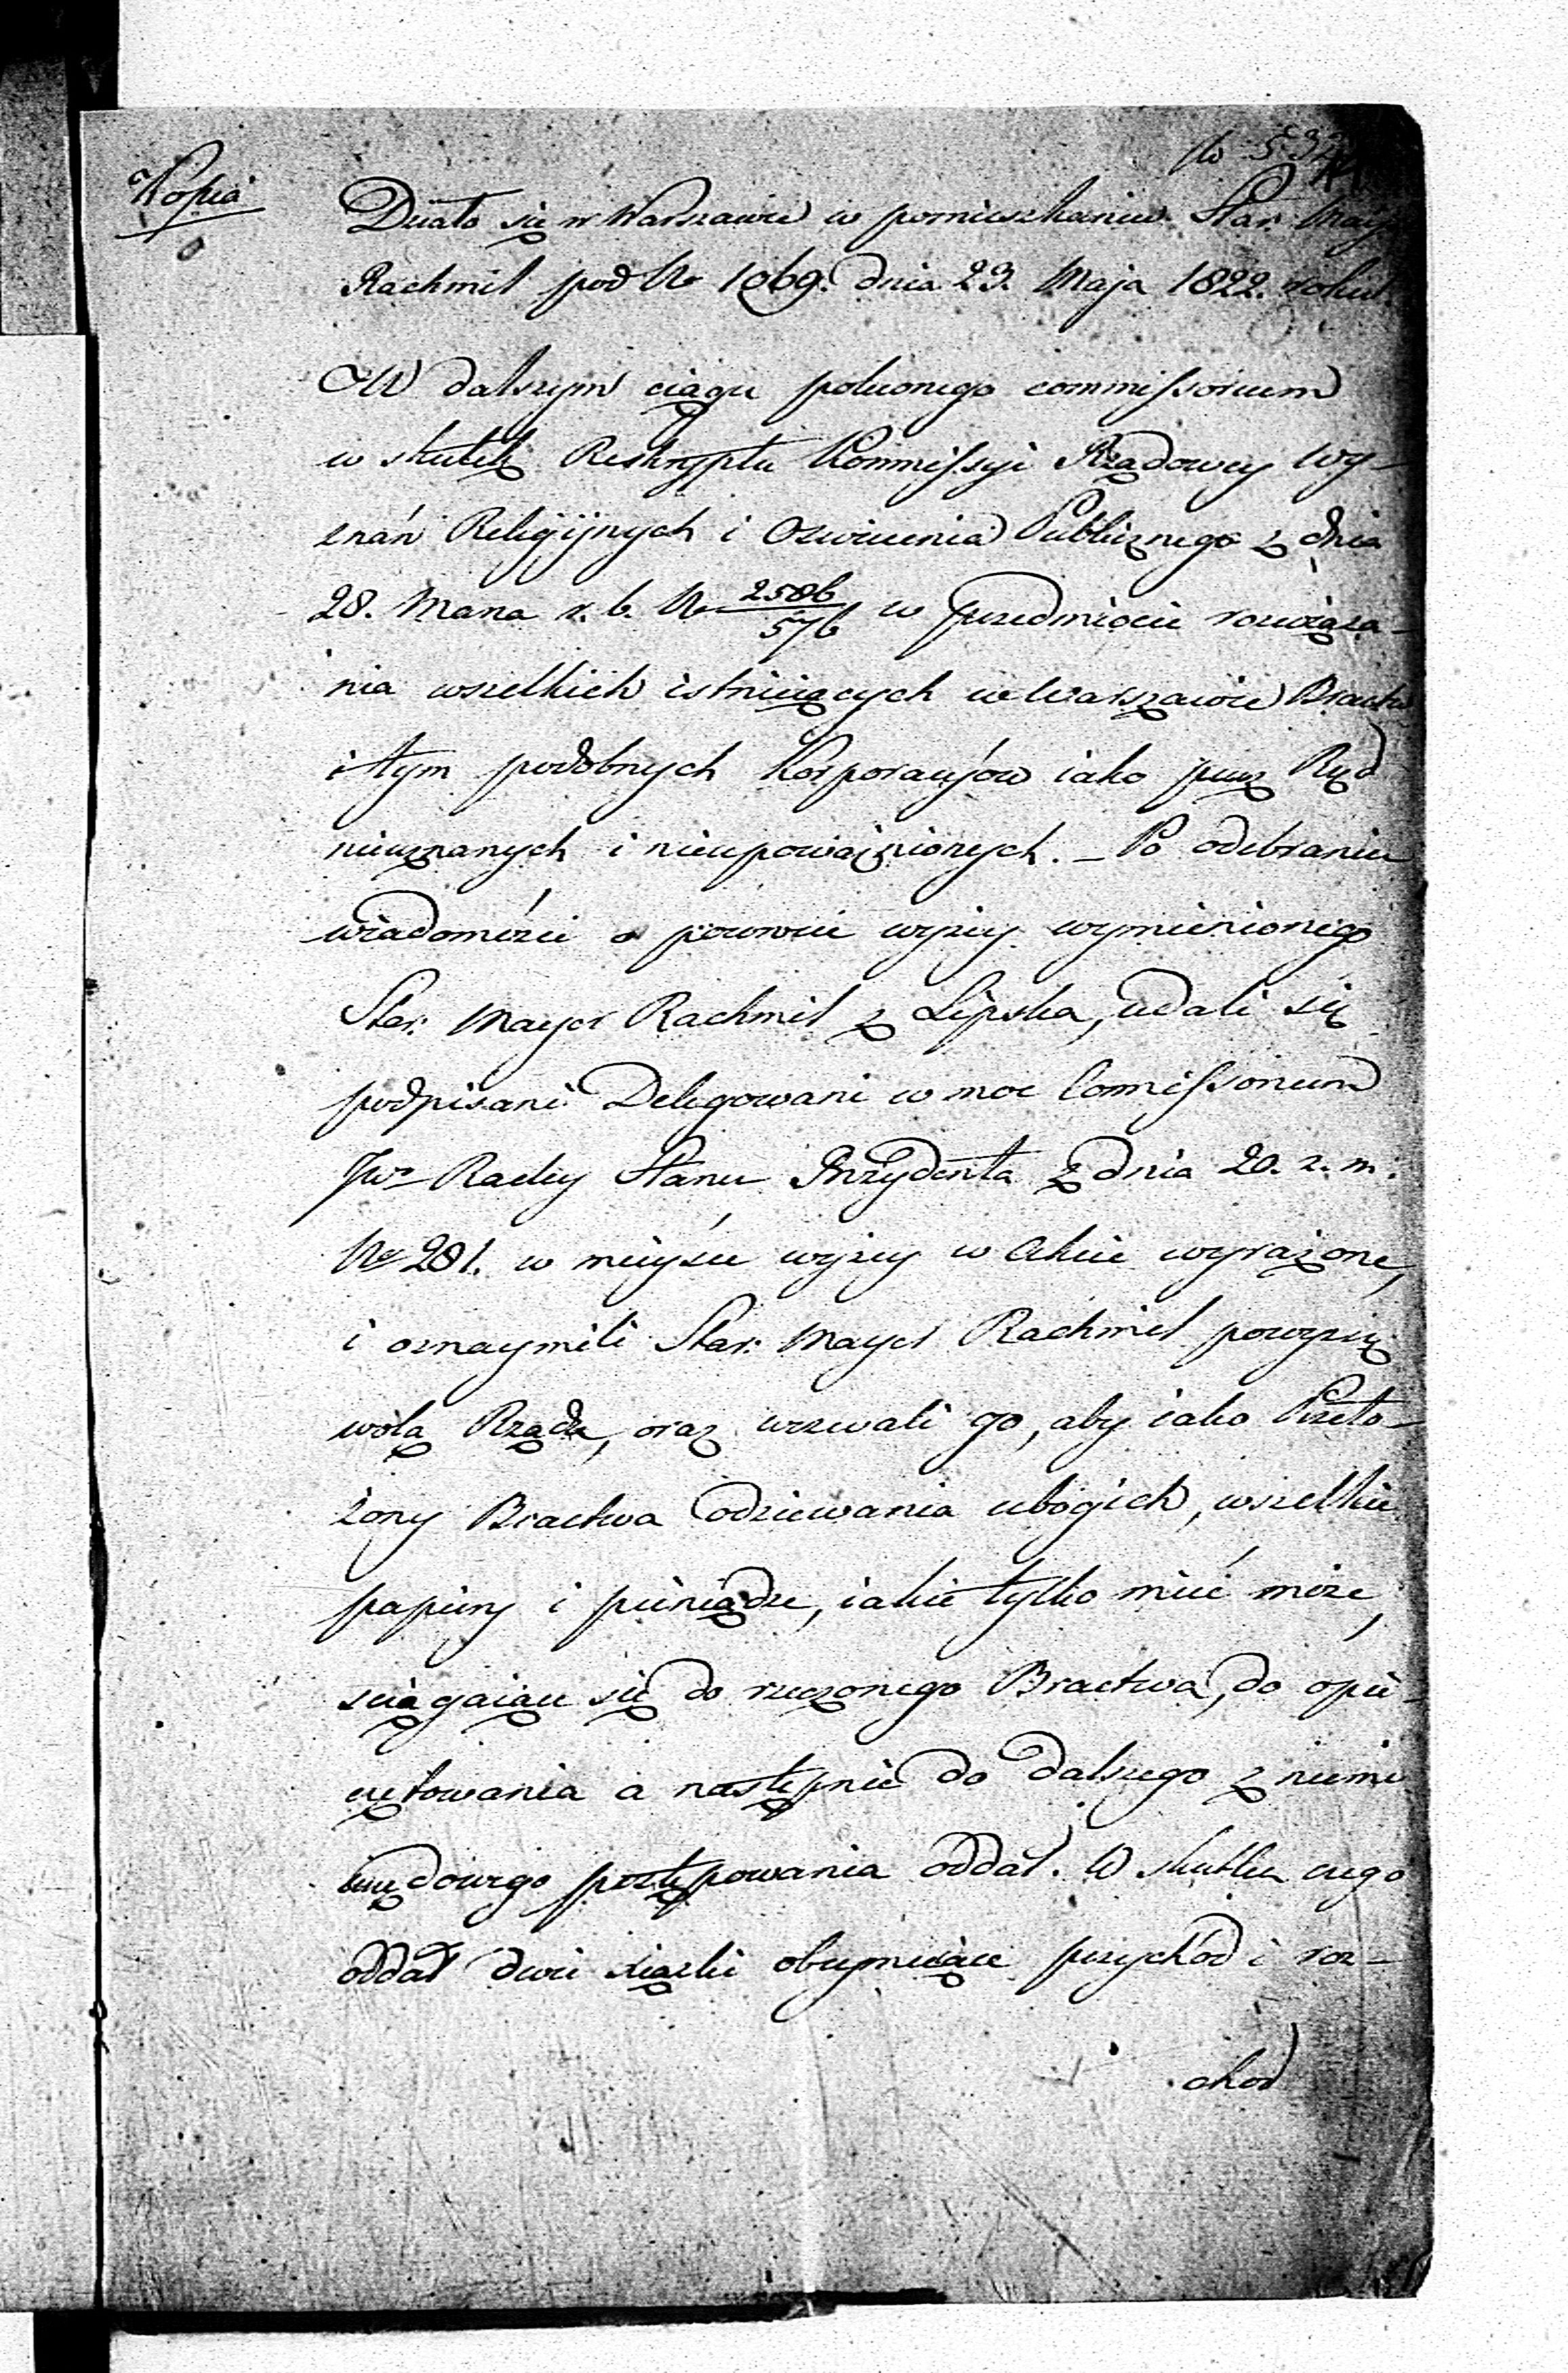 Kopia
do 534
Działo się w Warszawie w pomieszkaniu Star. May
Rachmil pod No 1069. dnia 23. Maja 1822. roku.
W dalszym ciągu poleconego commissorium
w skutek Reskryptu Kommissyi Rządowey Wy-
znań Religijnych i Oswiecenia Publicznego z dnia
28. Marca r. b. No 2586/576 w przedmiocie rozwiąza-
nia wszelkich istnieiących w Warszawie Bractw
i tym podobnych Korporacyjów iako przez Rząd
nieuznanych i nieupoważnionych. – Po odebraniu
wiadomości o powrocie wyżey wymienionego
Star: Mayer Rachmil z Lipska, udali się
podpisani Delegowani w moc Commissorium
JW Radcy Stanu Prezydenta z dnia 20. r. m.
No 281. w mieysce wyżey w Akcie wyrażone,
i oznaymili Star: Mayer Rachmil powyższą
wolą Rządu, oraz wezwali go, aby iako Przeło-
żony Bractwa odziewania ubogich, wszelkie
papiery i pieniądze, iakie tylko mieć może,
sciągaiące się do rzeczonego Bractwa, do opie-
czętowania a następnie do dalszego z niemi
urzędowego postępowania oddał. W skutku czego
oddał dwie xiążki obeymuiące przychód i roz-
chod